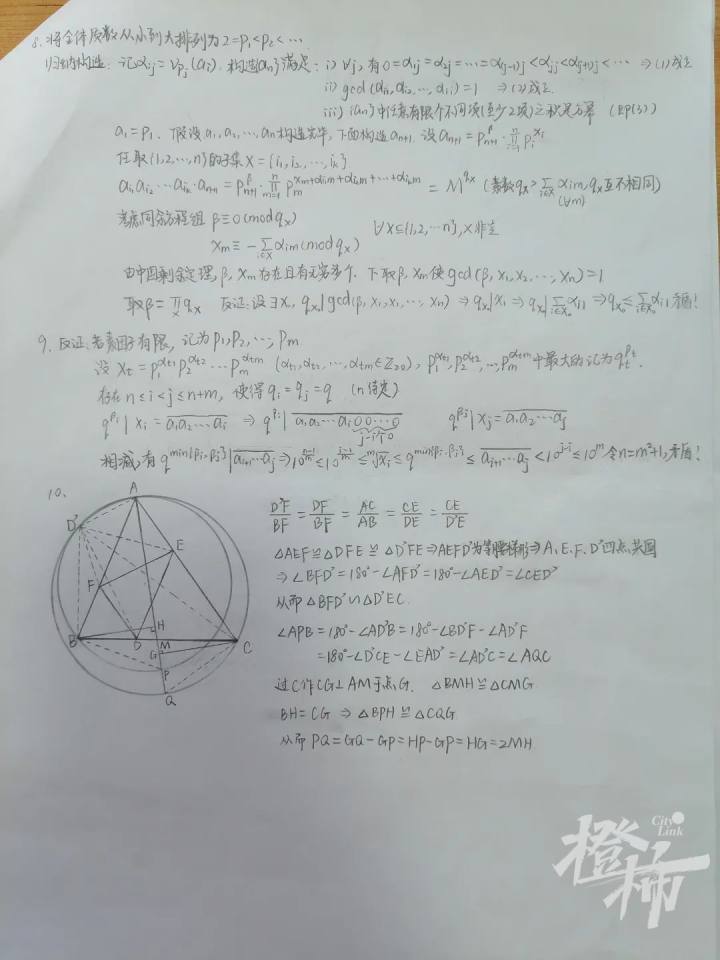 8. 将全体质数从小到大排列为2=p₁<p₂<…
归纳构造. 记αᵢⱼ=v_{pⱼ}(aᵢ). 构造{aₙ}满足: i) ∀j, 有0=α₁ⱼ=α₂ⱼ=…=α₍ⱼ₋₁₎ⱼ<αⱼⱼ<α₍ⱼ₊₁₎ⱼ<… ⇒(1)成立
ii) gcd(αᵢ₁,αᵢ₂,…,αᵢᵢ)=1 ⇒(2)成立.
iii) {aₙ}中任意有限个不同项(至少2项)之积是方幂 (即(3))
a₁=p₁. 假设a₁,a₂,…,aₙ构造完毕, 下面构造aₙ₊₁. 设aₙ₊₁=p_{n+1}^β·∏_{i=1}^n pᵢ^{xᵢ}
任取{1,2,…,n}的子集X={i₁,i₂,…,iₖ}
a_{i₁}a_{i₂}…a_{iₖ}·aₙ₊₁=p_{n+1}^β·∏_{m=1}^n p_m^{x_m+α_{i₁m}+α_{i₂m}+…+α_{iₖm}}=M^{q_X} (素数q_X>∑_{i∈X}α_{im}, q_X互不相同)
(∀m)
考虑同余方程组 β≡0(mod q_X)
∀X⊆{1,2,…n}, X非空
x_m≡-∑_{i∈X}α_{im}(mod q_X)
由中国剩余定理, β, x_m存在且有无穷多个. 下取β, x_m使gcd(β,x₁,x₂,…,xₙ)=1
取β=∏_X q_X 反证: 设∃X₀, q_{X₀}|gcd(β,x₁,x₂,…,xₙ)⇒q_{X₀}|x₁⇒q_{X₀}|∑_{i∈X₀}α_{i1}⇒q_{X₀}≤∑_{i∈X₀}α_{i1}矛盾!
9. 反证: 若素因子有限, 记为p₁,p₂,…,p_m.
设x_t=p₁^{α_{t1}}p₂^{α_{t2}}…p_m^{α_{tm}} (α_{t1},α_{t2},…,α_{tm}∈Z_{≥0}), p₁^{α_{t1}},p₂^{α_{t2}},…,p_m^{α_{tm}}中最大的记为q_t^{β_t}
存在n≤i<j≤n+m, 使得qᵢ=qⱼ=q (n待定)
q^{βᵢ}|xᵢ=\overline{a₁a₂…aᵢ} ⇒ q^{βᵢ}|\overline{a₁a₂…aᵢ00…0} q^{βⱼ}|xⱼ=\overline{a₁a₂…aⱼ}
j-i个0
相减, 有q^{min{βᵢ,βⱼ}}|\overline{a_{i+1}…aⱼ}⇒10^{\frac{n-1}{m}}≤10^{\frac{i-1}{m}}≤\sqrt[m]{xᵢ}≤q^{min{βᵢ,βⱼ}}≤\overline{a_{i+1}…aⱼ}<10^{j-i}≤10^m令n=m²+1, 矛盾!
10.
A
D'
E
F
H
B
D
M
C
G
P
Q
D'F/BF=DF/BF=AC/AB=CE/DE=CE/D'E
△AEF≌△DFE≌△D'FE⇒AEFD'为等腰梯形⇒A、E、F、D'四点共圆
⇒∠BFD'=180°-∠AFD'=180°-∠AED'=∠CED'
从而△BFD'∽△D'EC.
∠APB=180°-∠AD'B=180°-∠BD'F-∠AD'F
=180°-∠D'CE-∠EAD'=∠AD'C=∠AQC
过C作CG⊥AM于点G. △BMH≌△CMG
BH=CG ⇒△BPH≌△CQG
从而PQ=GQ-GP=HP-GP=HG=2MH
City Link
橙柿